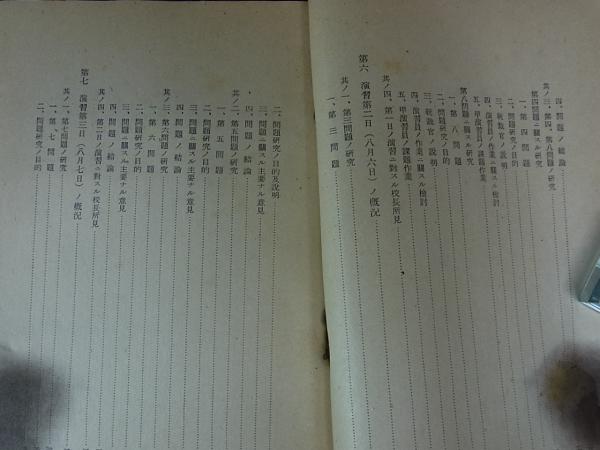 四、問題ノ結論
其ノ三、第四、第八問題ノ研究
第四問題ニ關スル研究
一、第四問題
二、問題研究ノ目的
三、統裁官ノ說明
四、演習員ノ作業ニ關スル檢討
五、甲演習員ノ課題作業
第八問題ニ關スル研究
一、第八問題
二、問題研究ノ目的
三、統裁官ノ說明
四、演習員ノ作業ニ關スル檢討
五、甲演習員ノ課題作業
其ノ四、第一日ノ演習ニ對スル校長所見
第六 演習第二日(八月六日)ノ槪況
其ノ一、第三問題ノ研究
一、第三問題
二、問題研究ノ目的及說明
三、問題ニ關スル主要ナル意見
四、問題ノ結論
其ノ二、第五問題ノ研究
一、第五問題
二、問題研究ノ目的
三、問題ニ關スル主要ナル意見
四、問題ノ結論
其ノ三、第六問題ノ研究
一、第六問題
二、問題研究ノ目的
三、問題ニ關スル主要ナル意見
四、問題ノ結論
其ノ四、第二日ノ演習ニ對スル校長所見
第七 演習第三日(八月七日)ノ槪況
其ノ一、第七問題ノ研究
一、第七問題
二、問題研究ノ目的